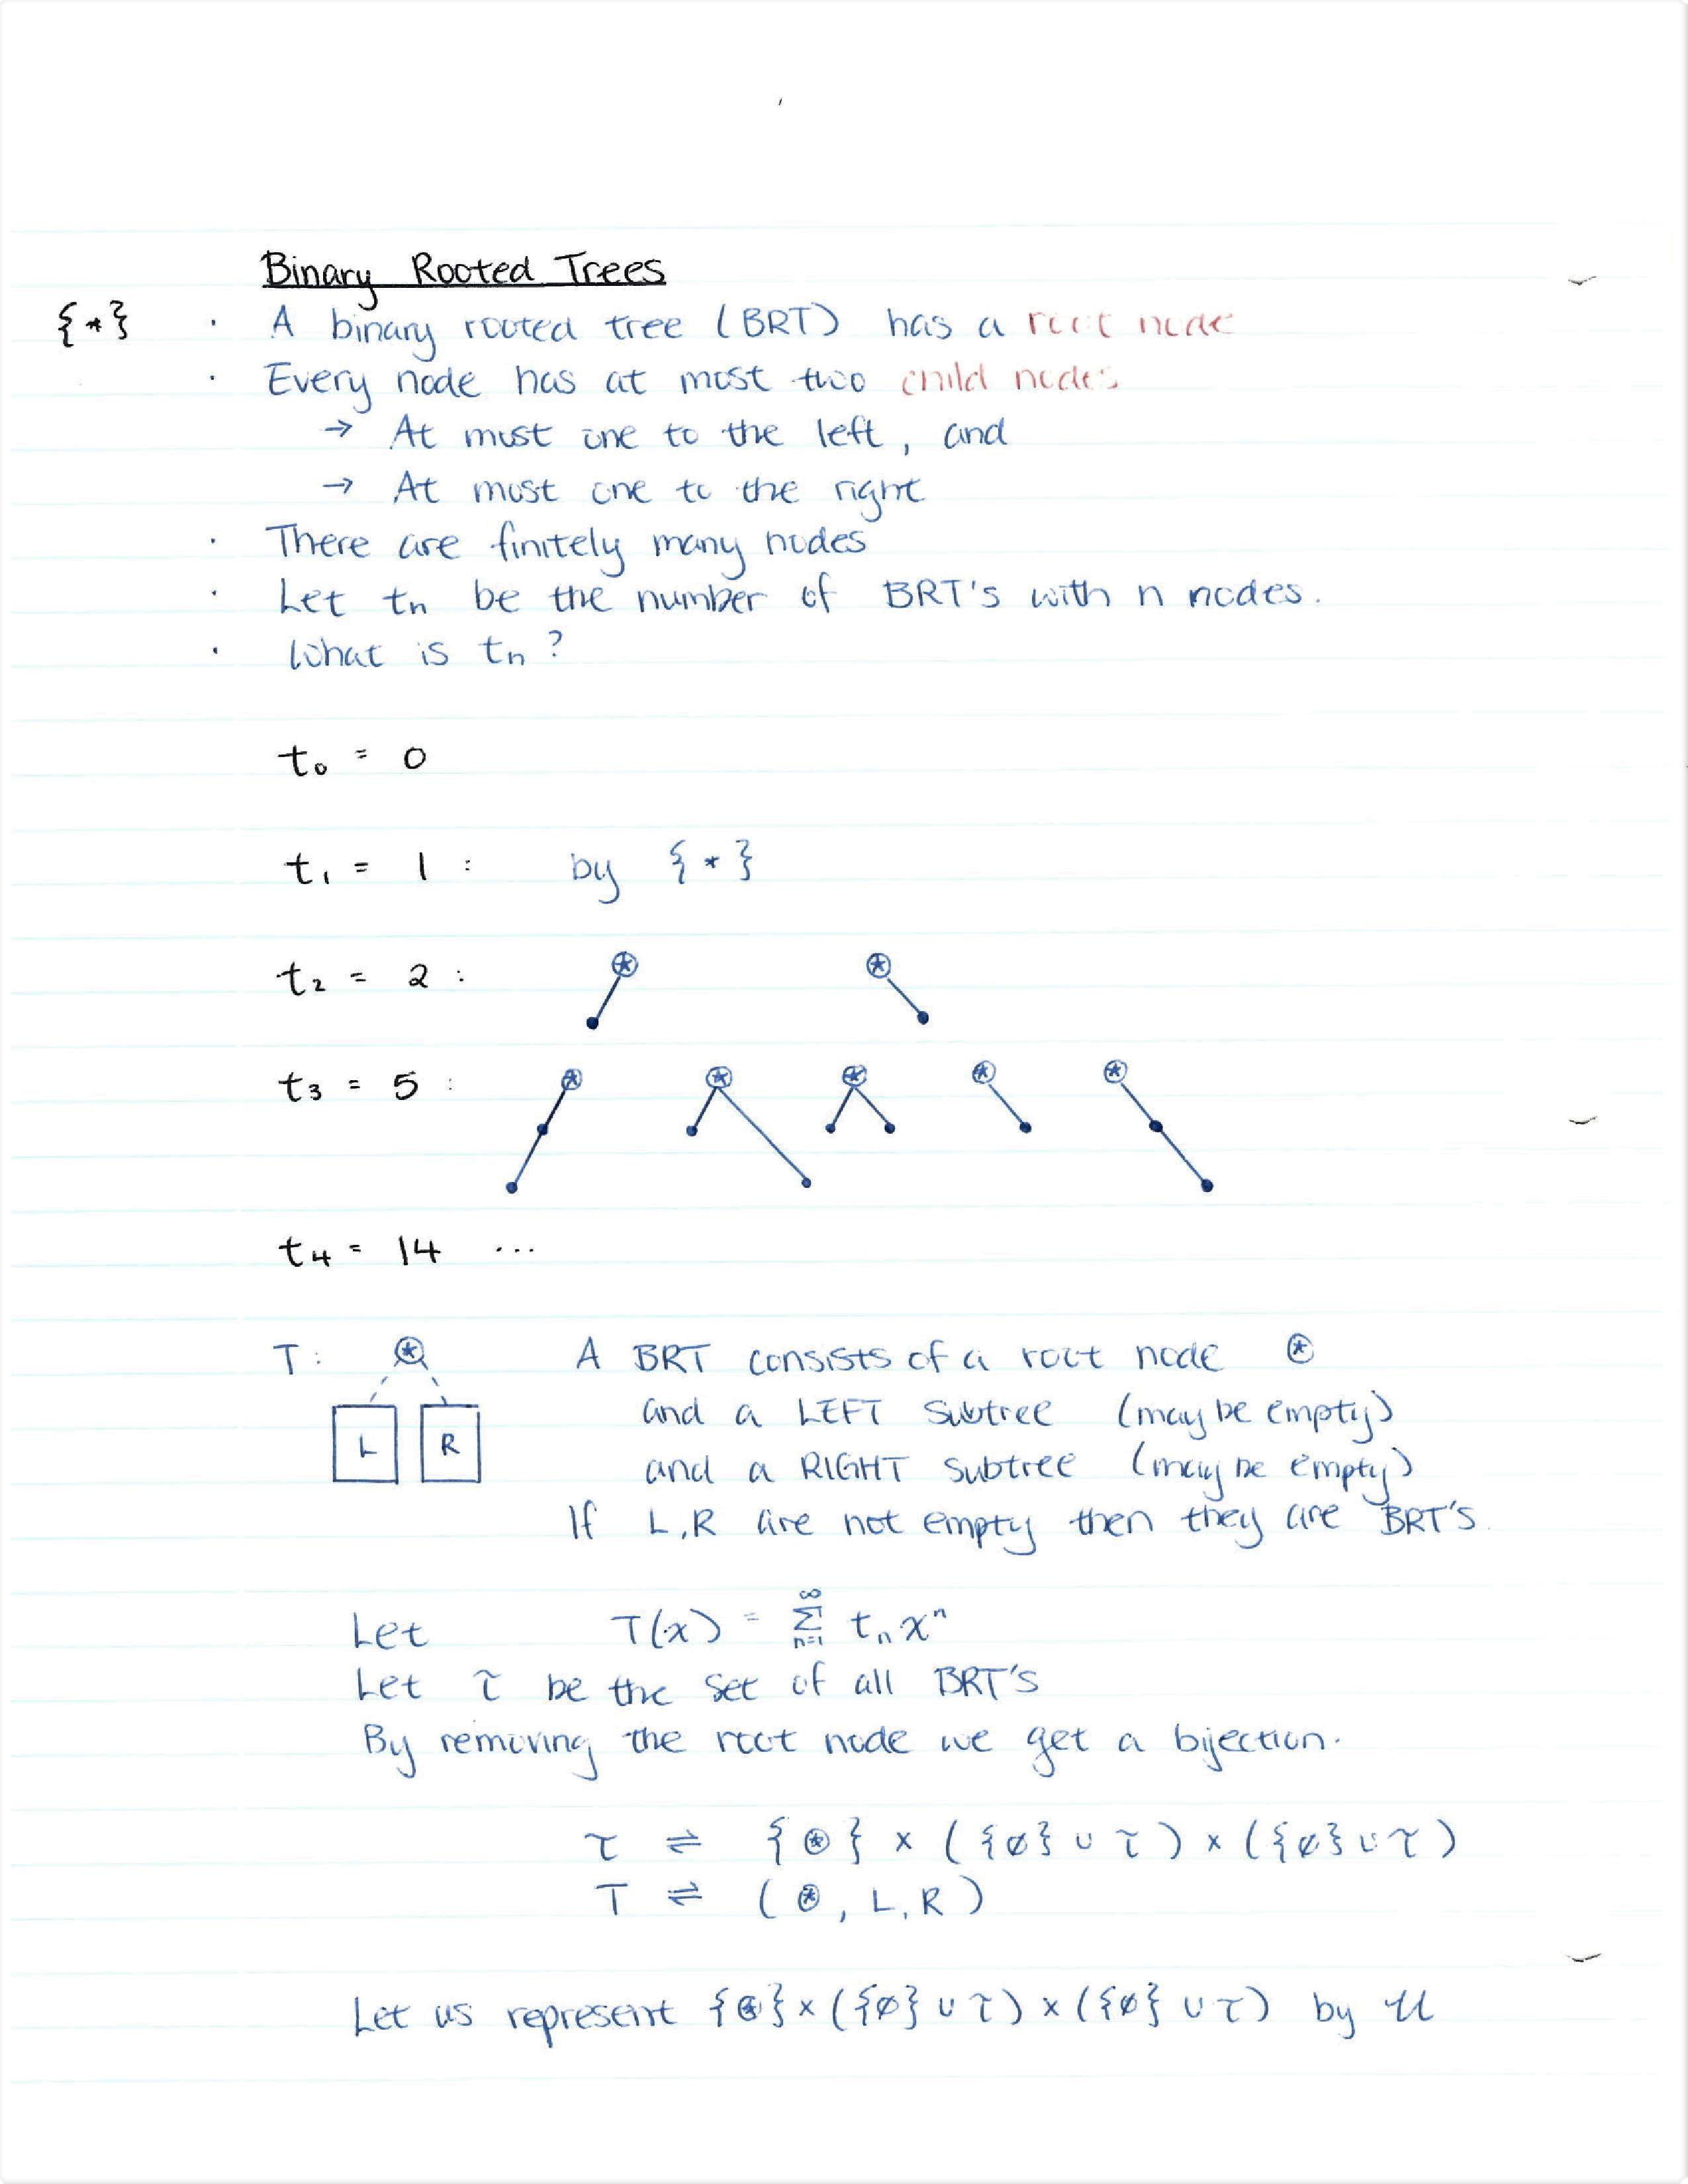 Binary Rooted Trees
{*} · A binary rooted tree (BRT) has a root node
· Every node has at most two child nodes
→ At most one to the left, and
→ At most one to the right
· There are finitely many nodes
· Let tn be the number of BRT's with n nodes.
· What is tn?
t₀ = 0
t₁ = 1 : by {*}
t₂ = 2 :
t₃ = 5 :
t₄ = 14 ...
T: ⊛ A BRT consists of a root node ⊛
and a LEFT subtree (may be empty)
L R and a RIGHT subtree (may be empty)
If L,R are not empty then they are BRT's.
Let T(x) = ∑_{n=1}^{∞} tₙxⁿ
Let τ be the set of all BRT's
By removing the root node we get a bijection.
τ ⇌ {⊛} × ({∅} ∪ τ) × ({∅} ∪ τ)
T ⇌ (⊛, L, R)
Let us represent {⊛} × ({∅} ∪ τ) × ({∅} ∪ τ) by U